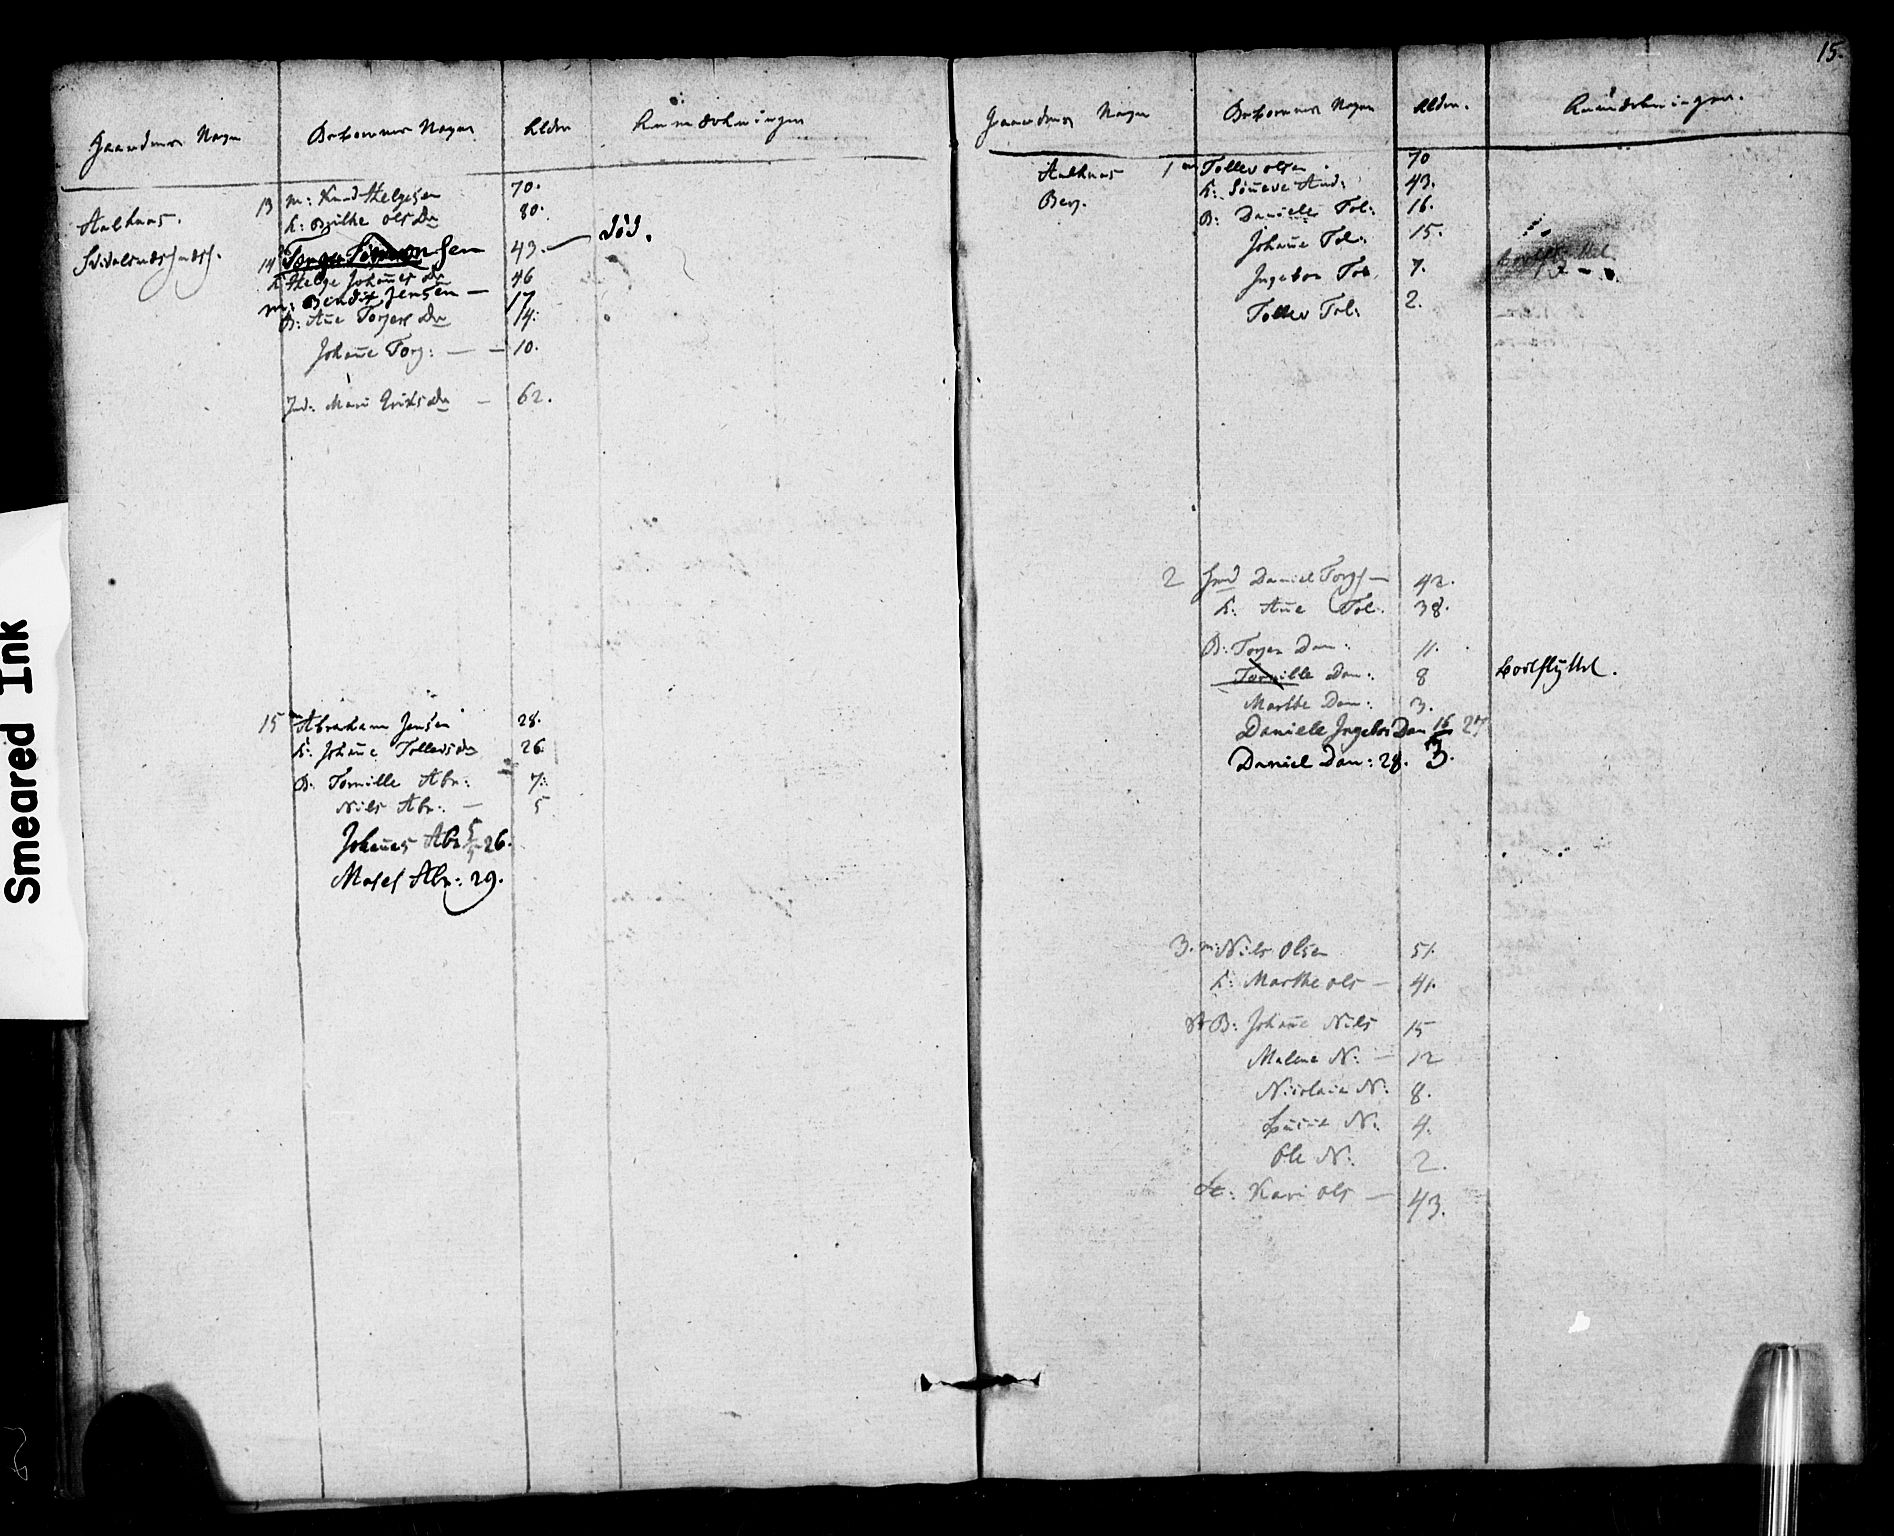 15.
Gaardenes Nagn
Beboernes Nagne
Alder
Anmærkninger
Aalhuus.
13 M: Knud Helgesen 70.
K: Birthe Ols Dr 80.
14 Torger Simonsen 43. — død.
K Helge Johannes Dr 46
M: Bendix Jensen — 17
B: Ane Torgers Dr 14.
Johanne Torg: — 10.
Ind: Mari Eriks Dr — 62.
15 Abraham Jensen 28.
K: Johanne Tollevs Dr 26.
B: Tomille Abr: 7.
Nils Abr: — 5
Johanes Abr 5/5 26.
Moses Abr: 29.
Gaardenes Nagn
Beboernes Nagne
Alder.
Anmærkninger.
Aalhuus
Berg.
1 m Tollev Olsen. 70
K: And: 43.
B: Danielle Tol: 16.
Johanne Tol. 15.
Ingebor Tol. 7.
Tollev Tol: 2.
2 Daniel Torgs — 42.
K: Ane Tol. 38.
B: Torger Dan: 11.
Tomille Dan: 8 bortflyttet.
Marthe Dan: 3.
Danielle Ingebor Dan 16/3 27
Daniel Dan: 28.
3. m: Nils Olsen 51.
K: Marthe Ols — 41.
B: Johanne Nils 15
Malene N: — 12
Nicolaia N: 8.
N: 4.
Ole N: 2.
Kari Ols — 43.
Smeared Ink